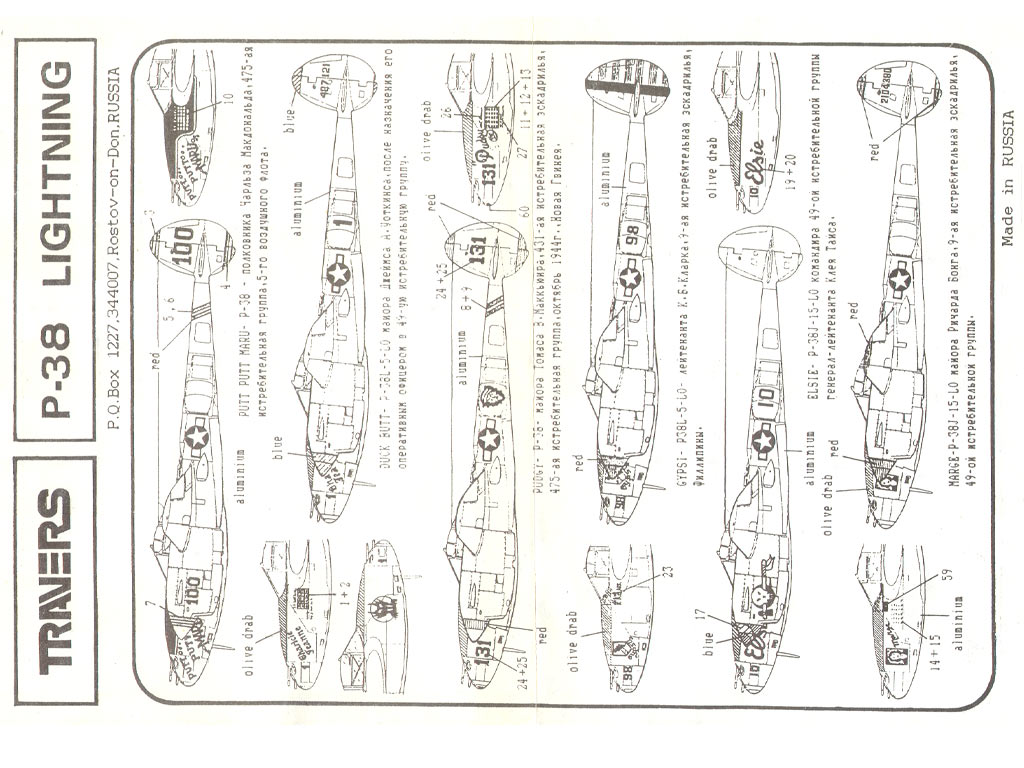 TRAVERS
P-38 LIGHTNING
P.O.Box 1227,344007,Rostov-on-Don.RUSSIA
7
100
red
5,6
100
3
4
10
aluminium
PUTT PUTT MARU- P-38 - полковника Чарльза Макдональда,475-ая
истребительная группа,5-го воздушного флота.
olive drab
1+2
blue
1
aluminium
blue
487121
DUCK BUTT- P-38L-5-LO майора Джеймса А.Уоткинса,после назначения его
оперативным офицером в 49-ую истребительную группу.
131
24+25
red
aluminium
8+9
24+25
131
red
olive drab
26
131 Pudgy
27
11+12+13
60
PUDGY- P-38- майора Томаса В.Маккьюира,431-ая истребительная эскадрилья,
475-ая истребительная группа,октябрь 1944г.,Новая Гвинея.
olive drab
98
23
red
98
98
aluminium
GYPSI- P38L-5-LO- лейтенанта К.Б.Кларка,9-ая истребительная эскадрилья,
Филлипины.
17
blue
10
Elsie
10
aluminium
olive drab
10 Elsie
19+20
ELSIE- P-38J-15-LO командира 49-ой истребительной группы
генерал-лейтенанта Клея Таиса.
59
14+15
aluminium
olive drab
red
red
red
2104380
MARGE-P-38J-15-LO майора Ричарда Бонга,9-ая истребительная эскадрилья,
49-ой истребительной группы.
Made in RUSSIA